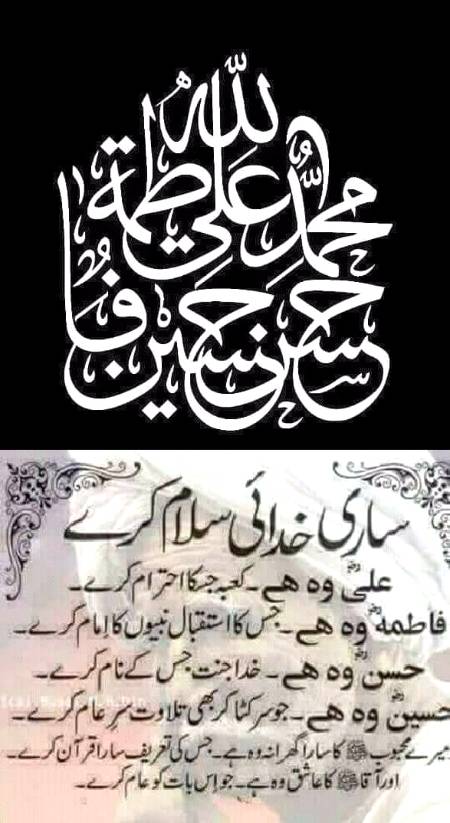 الله
محمد علی فاطمة
حسن حسین
ساری خدائی سلام کرے
علیؓ وہ ھے۔ کعبہ جسکا احترام کرے۔
فاطمهؓ وہ ھے۔ جس کا استقبال نبیوں کا امام کرے۔
حسنؓ وہ ھے۔ خدا جنت جس کے نام کرے۔
حسینؓ وہ ھے۔ جو سر کٹا کر بھی تلاوت سرِ عام کرے۔
میرے محبوب ﷺ کا سارا گھرانہ وہ ہے۔ جس کی تعریف سارا قرآن کرے۔
اور آقا ﷺ کا عاشق وہ ہے۔ جو اِس بات کو عام کرے۔